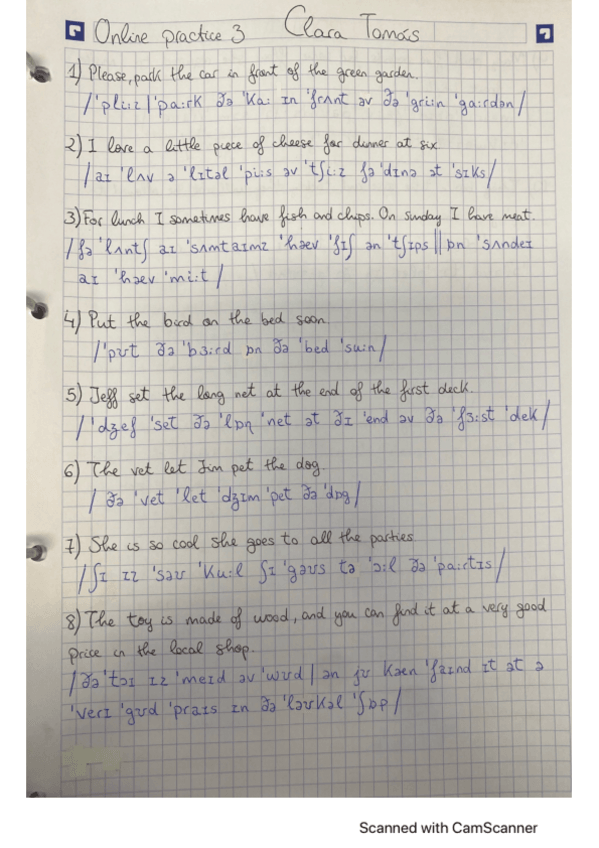 Online practice 3 Clara Tomás
1) Please, park the car in front of the green garden.
/ˈpliːz | ˈpaːrk ðə ˈkaː ɪn ˈfrʌnt əv ðə ˈgriːn ˈgaːrdən/
2) I love a little piece of cheese for dinner at six.
/aɪ ˈlʌv ə ˈlɪtəl ˈpiːs əv ˈtʃiːz fə ˈdɪnə ət ˈsɪks/
3) For lunch I sometimes have fish and chips. On sunday I have meat.
/fə ˈlʌntʃ aɪ ˈsʌmtaɪmz ˈhæv ˈfɪʃ ən ˈtʃɪps || ɒn ˈsʌndeɪ
aɪ ˈhæv ˈmiːt/
4) Put the bird on the bed soon.
/ˈpʊt ðə ˈbɜːrd ɒn ðə ˈbed ˈsuːn/
5) Jeff set the long net at the end of the first deck.
/ˈdʒef ˈset ðə ˈlɒŋ ˈnet ət ðɪ ˈend əv ðə ˈfɜːst ˈdek/
6) The vet let Jim pet the dog.
/ðə ˈvet ˈlet ˈdʒɪm ˈpet ðə ˈdɒg/
7) She is so cool she goes to all the parties.
/ʃɪ ɪz ˈsəʊ ˈkuːl ʃɪ ˈgəʊs tə ˈɔːl ðə ˈpaːrtɪs/
8) The toy is made of wood, and you can find it at a very good
price in the local shop.
/ðə ˈtɔɪ ɪz ˈmeɪd əv ˈwʊd | ən jʊ kæn ˈfaɪnd ɪt ət ə
ˈverɪ ˈgʊd ˈpraɪs ɪn ðə ˈləʊkəl ˈʃɒp/
Scanned with CamScanner